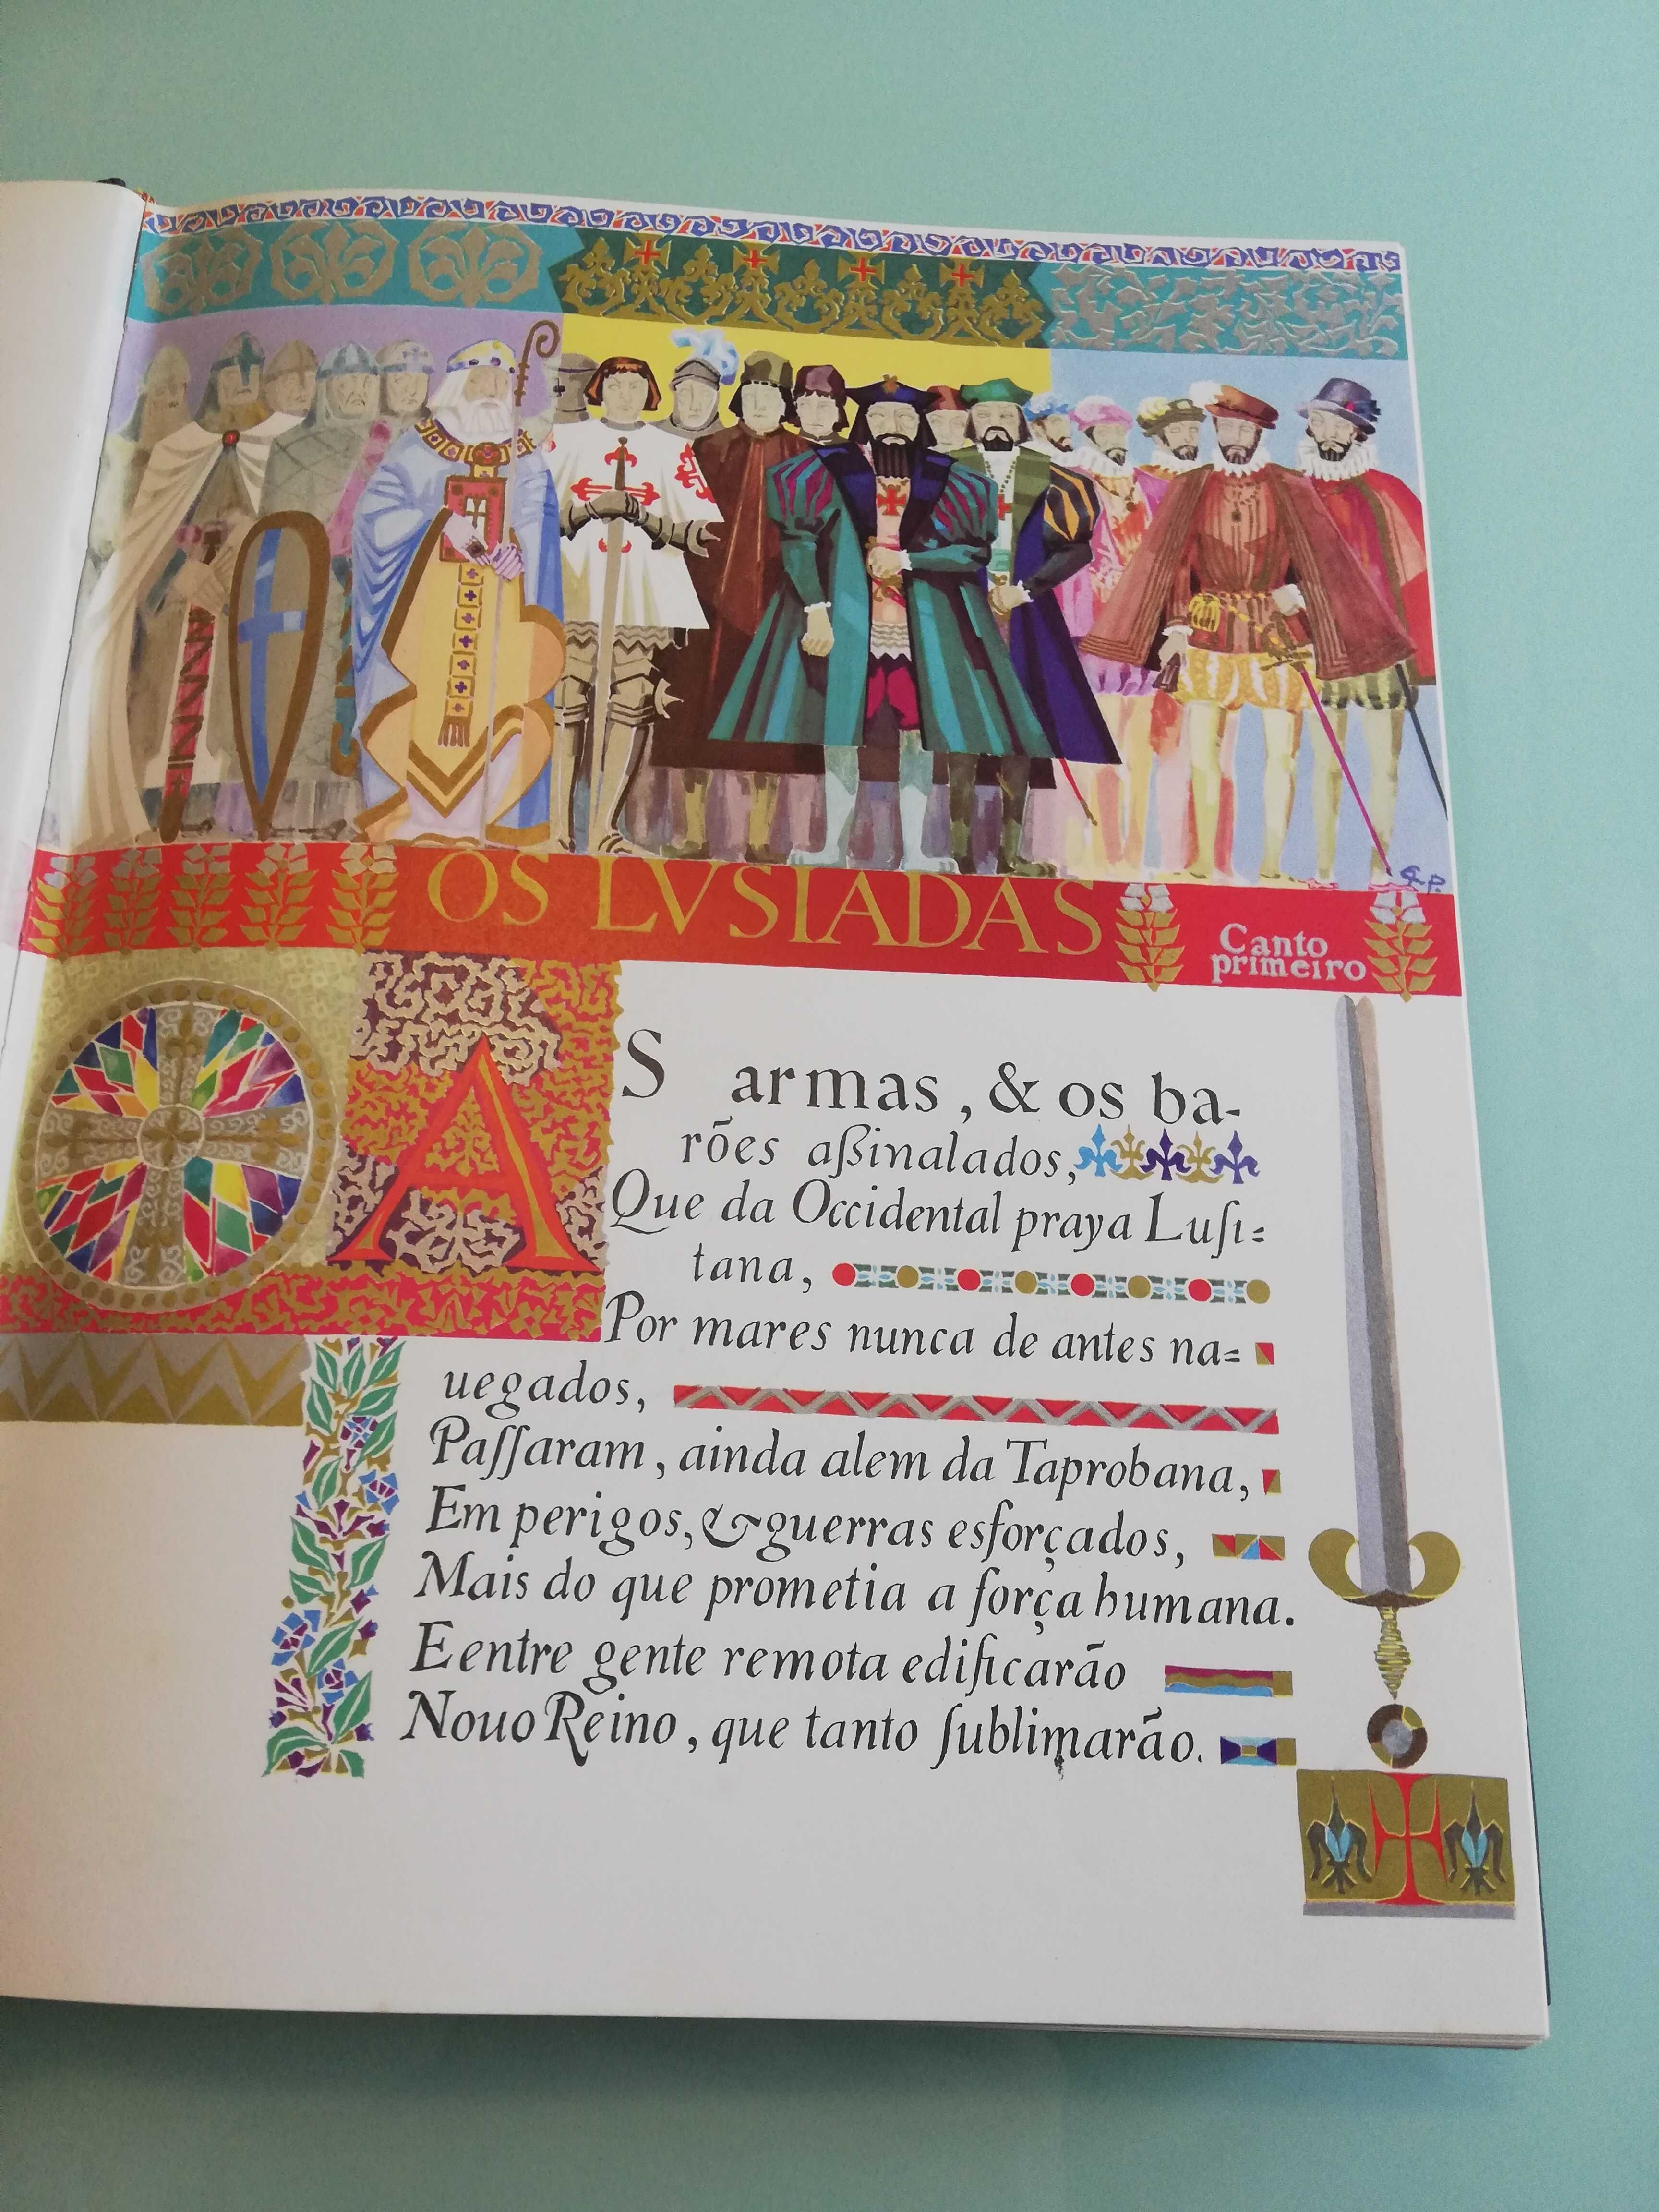 OS LVSIADAS
Canto
primeiro
AS armas, & os ba-
rões aßinalados,
Que da Occidental praya Luſi=
tana,
Por mares nunca de antes na=
uegados,
Paſſaram, ainda alem da Taprobana,
Em perigos, & guerras esforçados,
Mais do que prometia a força humana.
E entre gente remota edificarão
Nouo Reino, que tanto ſublimarão.